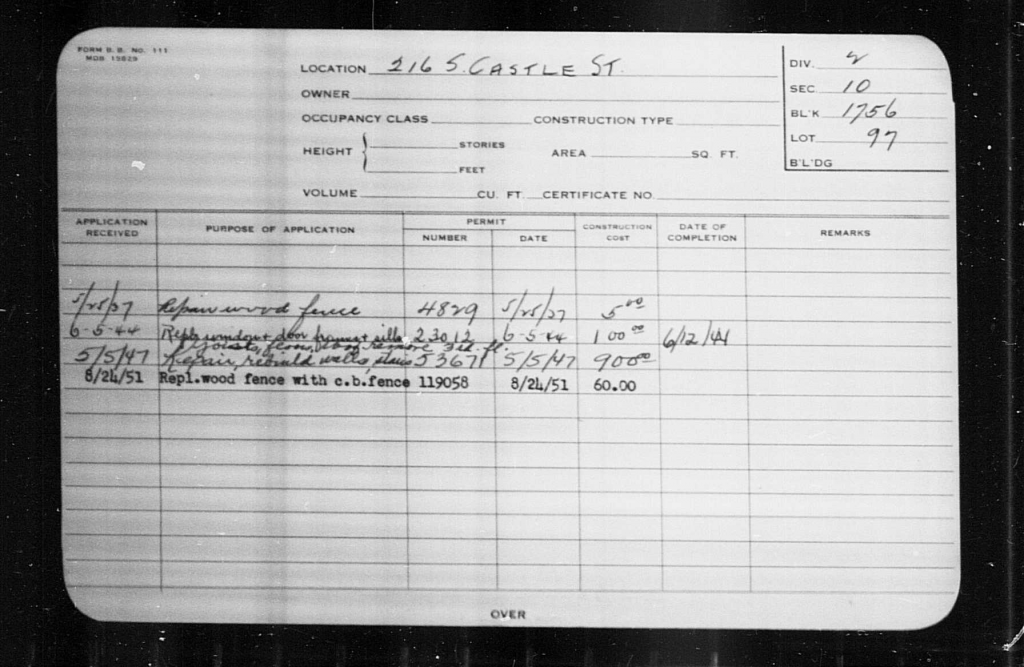 FORM B. B. NO. 111
MOB. 15029
LOCATION 216 S. CASTLE ST.
OWNER
OCCUPANCY CLASS CONSTRUCTION TYPE
HEIGHT { STORIES AREA SQ. FT.
FEET
VOLUME CU. FT. CERTIFICATE NO.
DIV. 2
SEC. 10
BL'K 1756
LOT 97
B'L'DG
APPLICATION RECEIVED PURPOSE OF APPLICATION PERMIT NUMBER DATE CONSTRUCTION COST DATE OF COMPLETION REMARKS
5/25/27 Repair wood fence 4829 5/25/27 5 00
6-5-44 Repl. window + door frames + sills 23012 6-5-44 100 00 6/12/44
joists, floor, remove 3rd fl.
5/5/47 Repair, rebuild walls, stairs 53671 5/5/47 900 00
8/24/51 Repl.wood fence with c.b.fence 119058 8/24/51 60.00
OVER